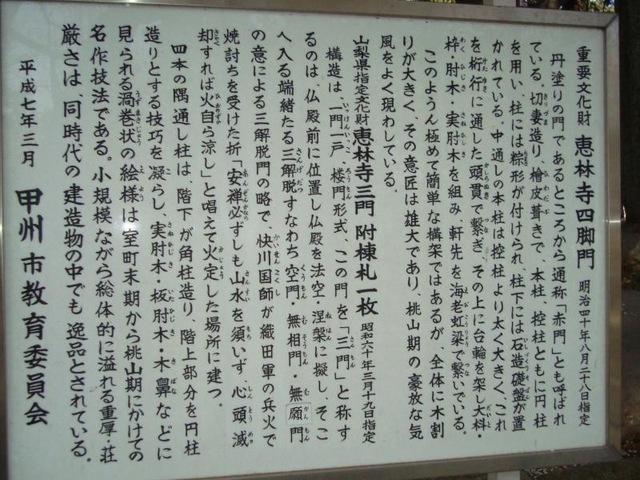 重要文化財 恵林寺四脚門 明治四十年八月二十八日指定
丹塗りの門であるところから通称「赤門」とも呼ばれ
ている。切妻造り、檜皮葺きで、本柱、控柱ともに円柱
を用い、柱には粽形が付けられ、柱下には石造礎盤が置
かれている。中通しの本柱は控柱より太く大きく、これ
を桁行に通した頭貫で繋ぎ、その上に台輪を架し大枓・
枠・肘木・実肘木を組み、軒先を海老虹梁で繋いでいる。
このようん極めて簡単な構架ではあるが、全体に木割
りが大きく、その意匠は雄大であり、桃山期の豪放な気
風をよく現わしている。
山梨県指定文化財 恵林寺三門 附棟札一枚 昭和六十年三月十九日指定
構造は、一門一戸、楼門形式、この門を「三門」と称す
るのは、仏殿前に位置し仏殿を法空・涅槃に擬し、そこ
へ入る端緒たる三解脱すなわち空門・無相門・無願門
の意による三解脱門の略で、快川国師が織田軍の兵火で
焼討ちを受けた折「安禅必ずしも山水を須いず、心頭滅
却すれば火自ら涼し」と唱えて火定した場所に建つ。
四本の隅通し柱は、階下が角柱造り、階上部分を円柱
造りとする技巧を凝らし、実肘木・板肘木・木鼻などに
見られる渦巻状の絵様は室町末期から桃山期にかけての
名作技法である。小規模ながら総体的に溢れる重厚・荘
厳さは、同時代の建造物の中でも逸品とされている。
平成七年三月 甲州市教育委員会